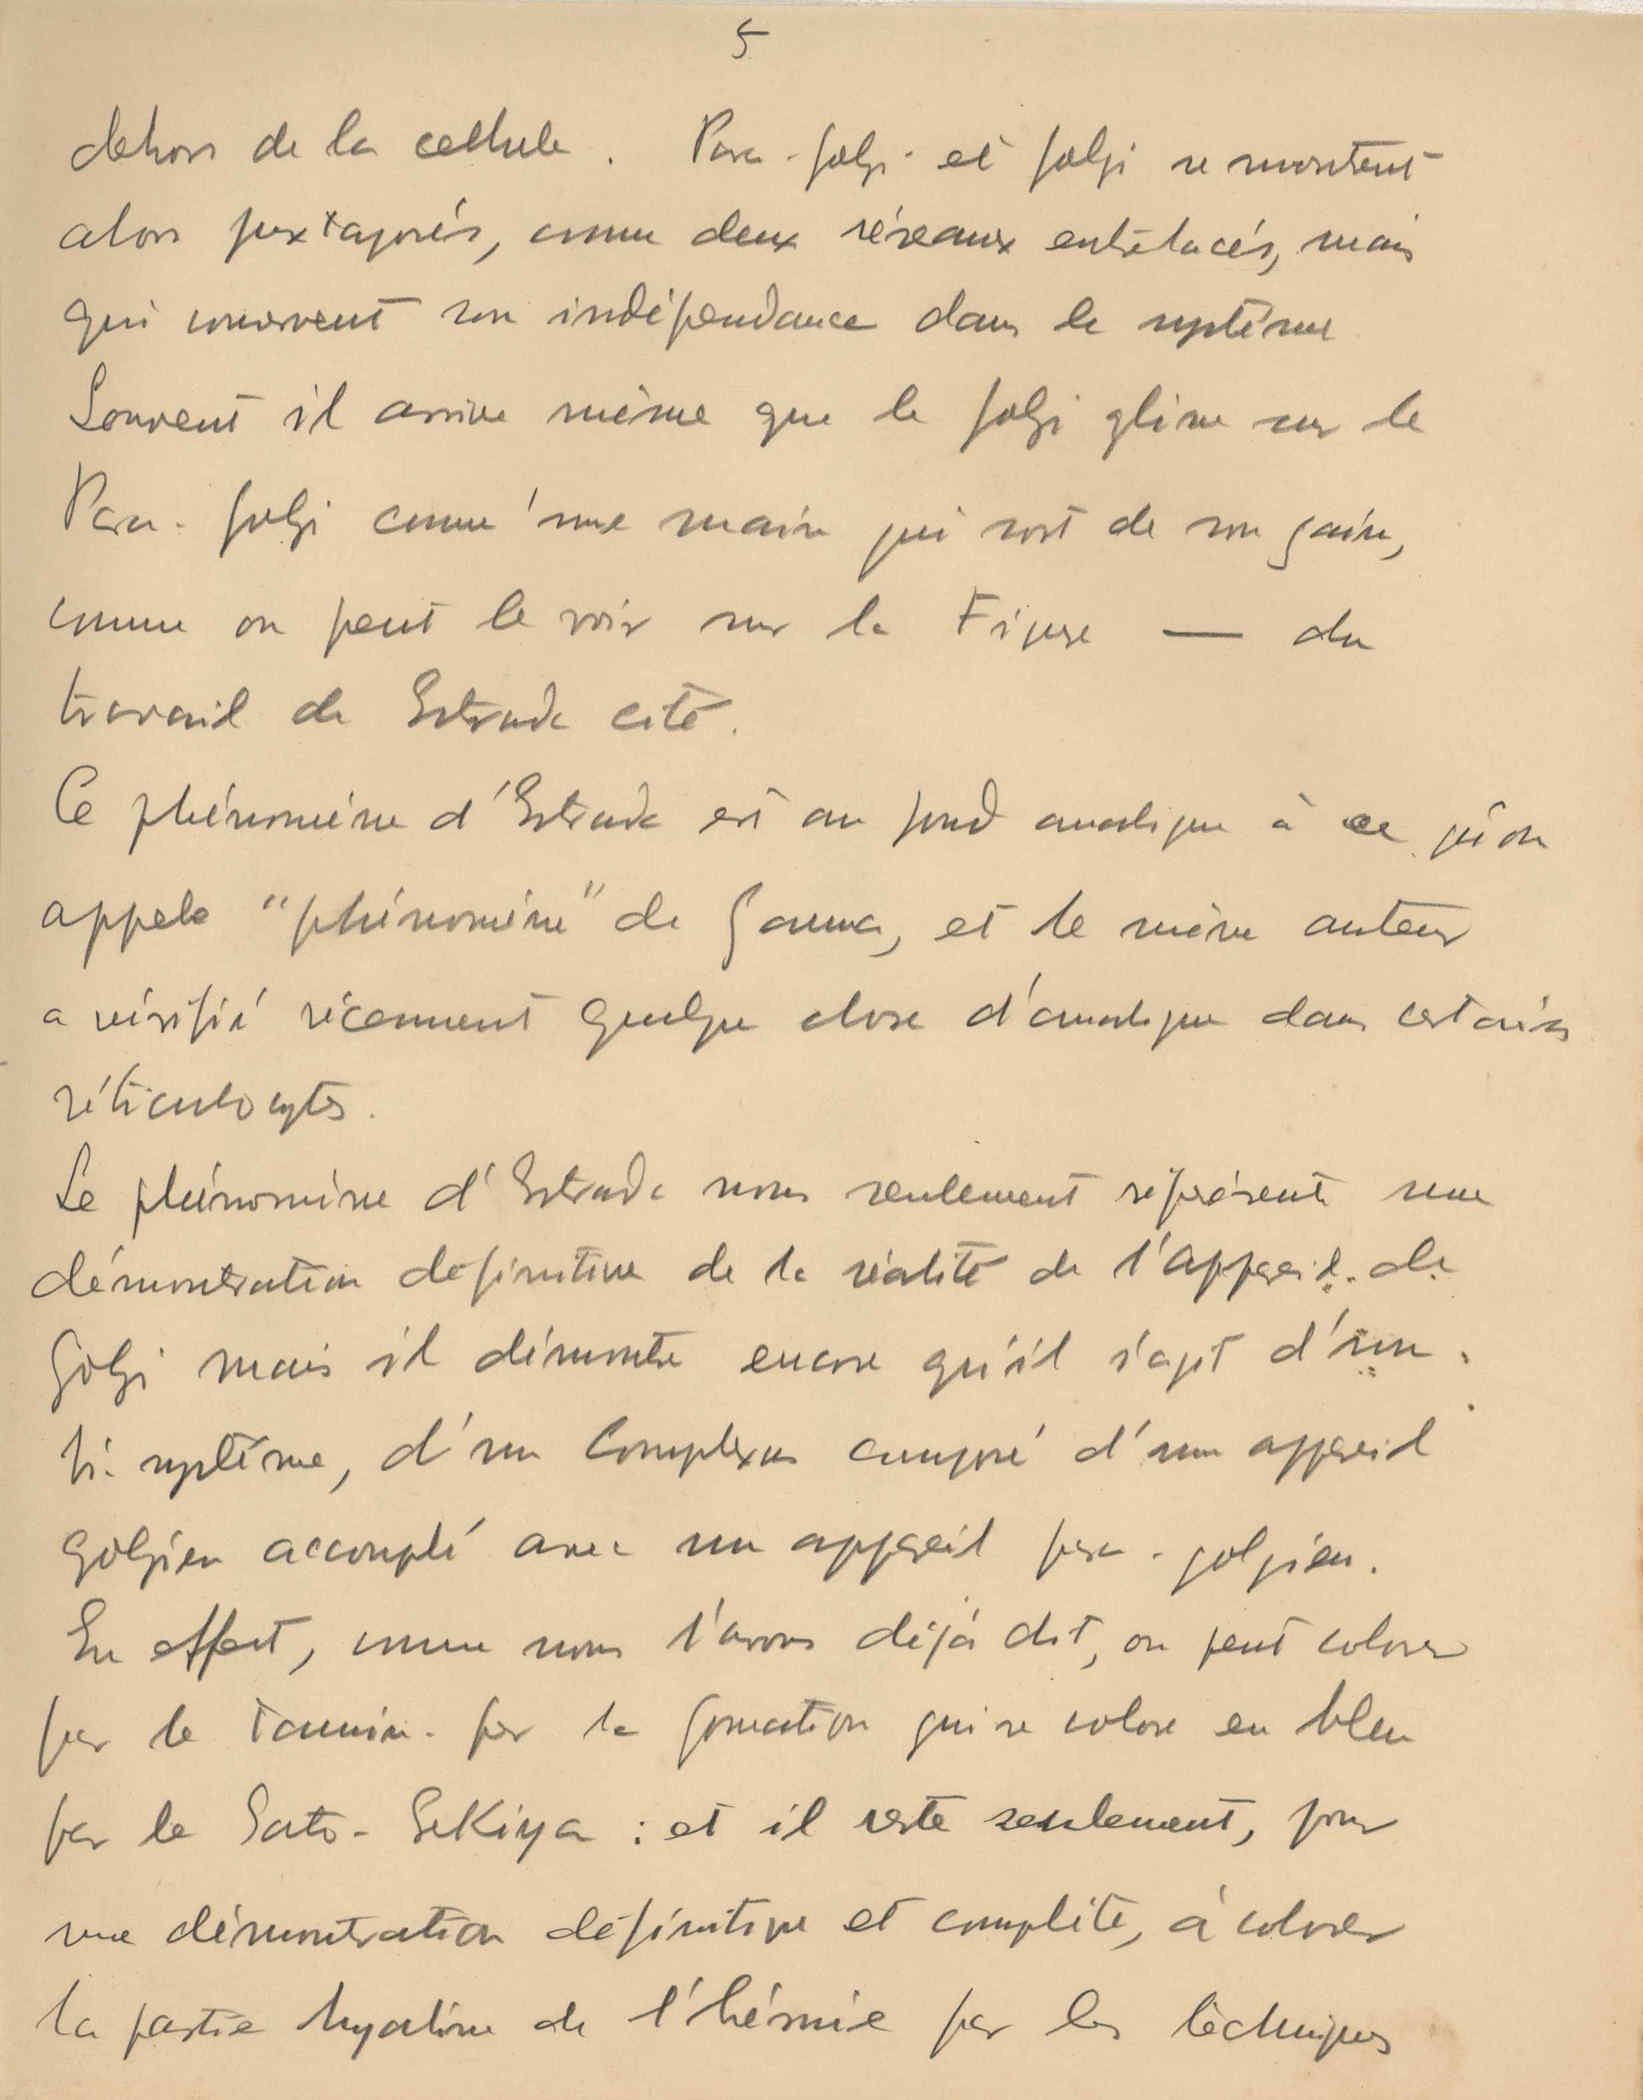 5
dehors de la cellule. Para-golgi et golgi se montrent
alors juxtaposés, comme deux réseaux entrelacés, mais
qui conservent son indépendance dans le système
Souvent il arrive même que le golgi glisse sur le
Para-golgi comme une main qui sort de son gain,
comme on peut le voir sur la Figure — du
travail de Estrada cité.
Ce phénomène d'Estrada est au fond analogue à ce qu'on
appele "phénomène" de Gauna, et le même auteur
a vérifié récemment quelque chose d'analogue dans certains
réticulocytes.
Le phénomène d'Estrada non seulement représente une
démonstration definitive de la réalité de l'appareil de
Golgi mais il démontre encore qu'il s'agit d'un
bi-système, d'un Complexus composé d'un appareil
golgien accouplé avec un appareil para-golgien.
En effect, comme nous l'avons déjà dit, on peut colorer
par le tannin-fer la formation qui se colore en bleu
par le Sato-Sekiya : et il reste seulement, pour
une démonstration définitive et complète, à colorer
la partie hyaline de l'hérnie par les téchniques